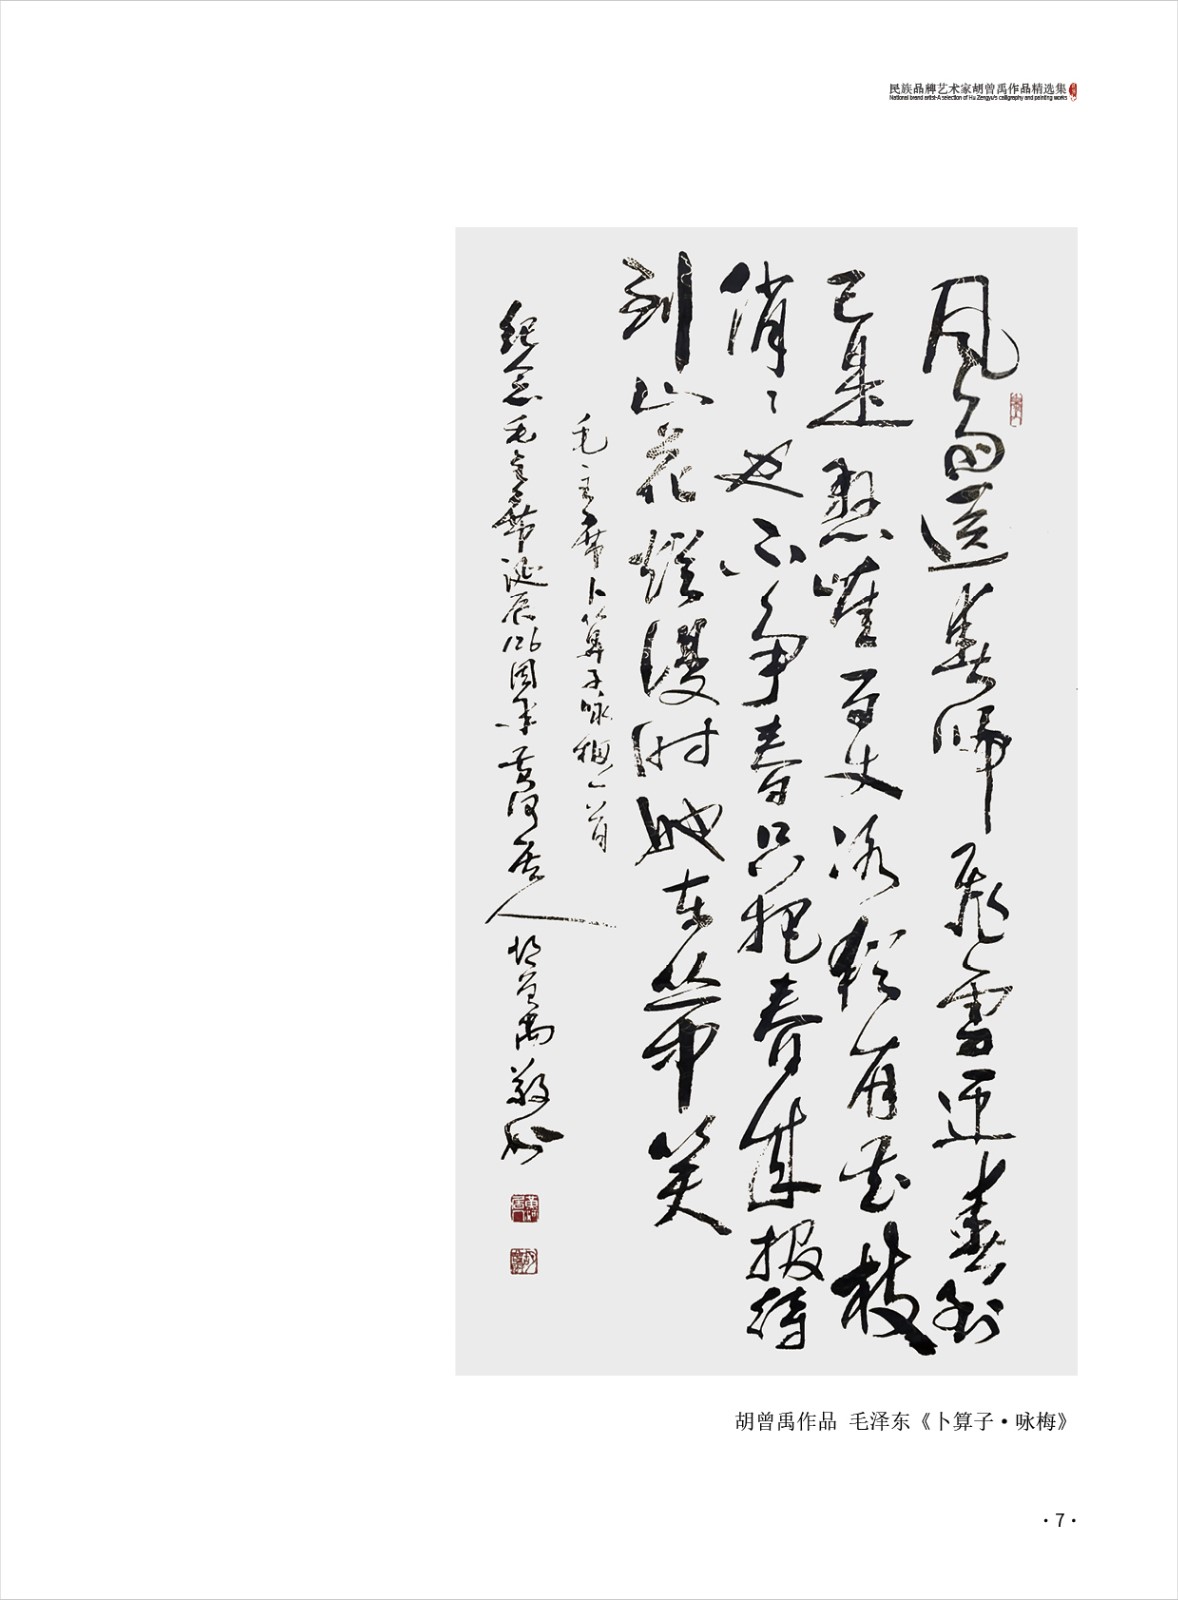 民族品牌艺术家胡曾禹作品精选集
National brand artist-A selection of Hu Zengyu's calligraphy and painting works
风雨送春归飞雪迎春到
已是悬崖百丈冰犹有花枝
俏〻也不争春只把春来报待
到山花烂漫时她在丛中笑
毛主席卜算子咏梅一首
纪念毛主席诞辰126周年黄河居人胡曾禹敬书
胡曾禹作品 毛泽东《卜算子·咏梅》
·7·